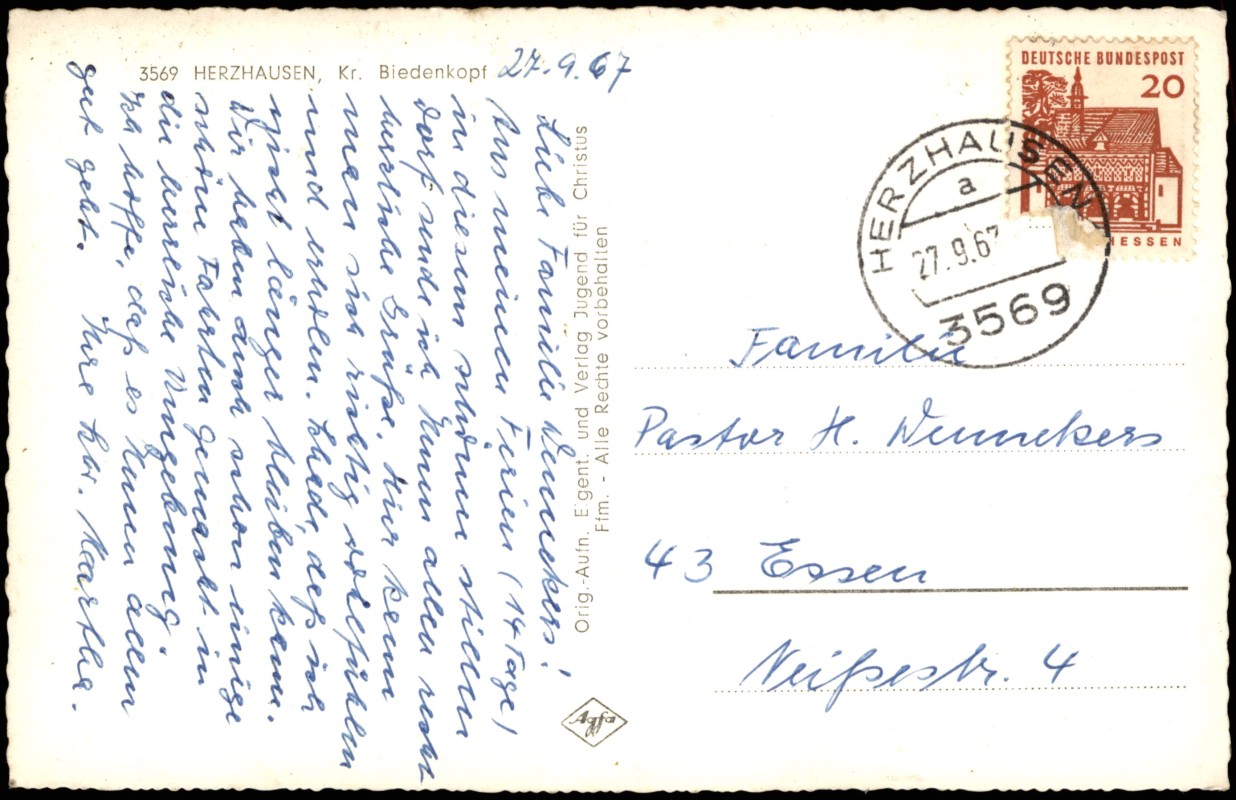 3569 HERZHAUSEN, Kr. Biedenkopf
27.9.67
Liebe Familie Wennekers!
Aus meinen Ferien (14 Tage)
in diesem schönen stillen
Dorf sende ich Ihnen allen recht
herzliche Grüße. Hier kann
man sich richtig wohlfühlen
und erholen. Schade, daß ich
nicht länger bleiben kann.
Wir haben auch schon einige
schöne Fahrten gemacht in
die herrliche Umgebung.
Ich hoffe, daß es Ihnen allen
gut geht. Ihre Schw. Martha.
Orig.-Aufn. Eigent. und Verlag Jugend für Christus
Ffm. - Alle Rechte vorbehalten
Agfa
DEUTSCHE BUNDESPOST
20
HESSEN
HERZHAUSEN
a
27.9.67
3569
Familie
Pastor H. Wennekers
43 Essen
Neißestr. 4